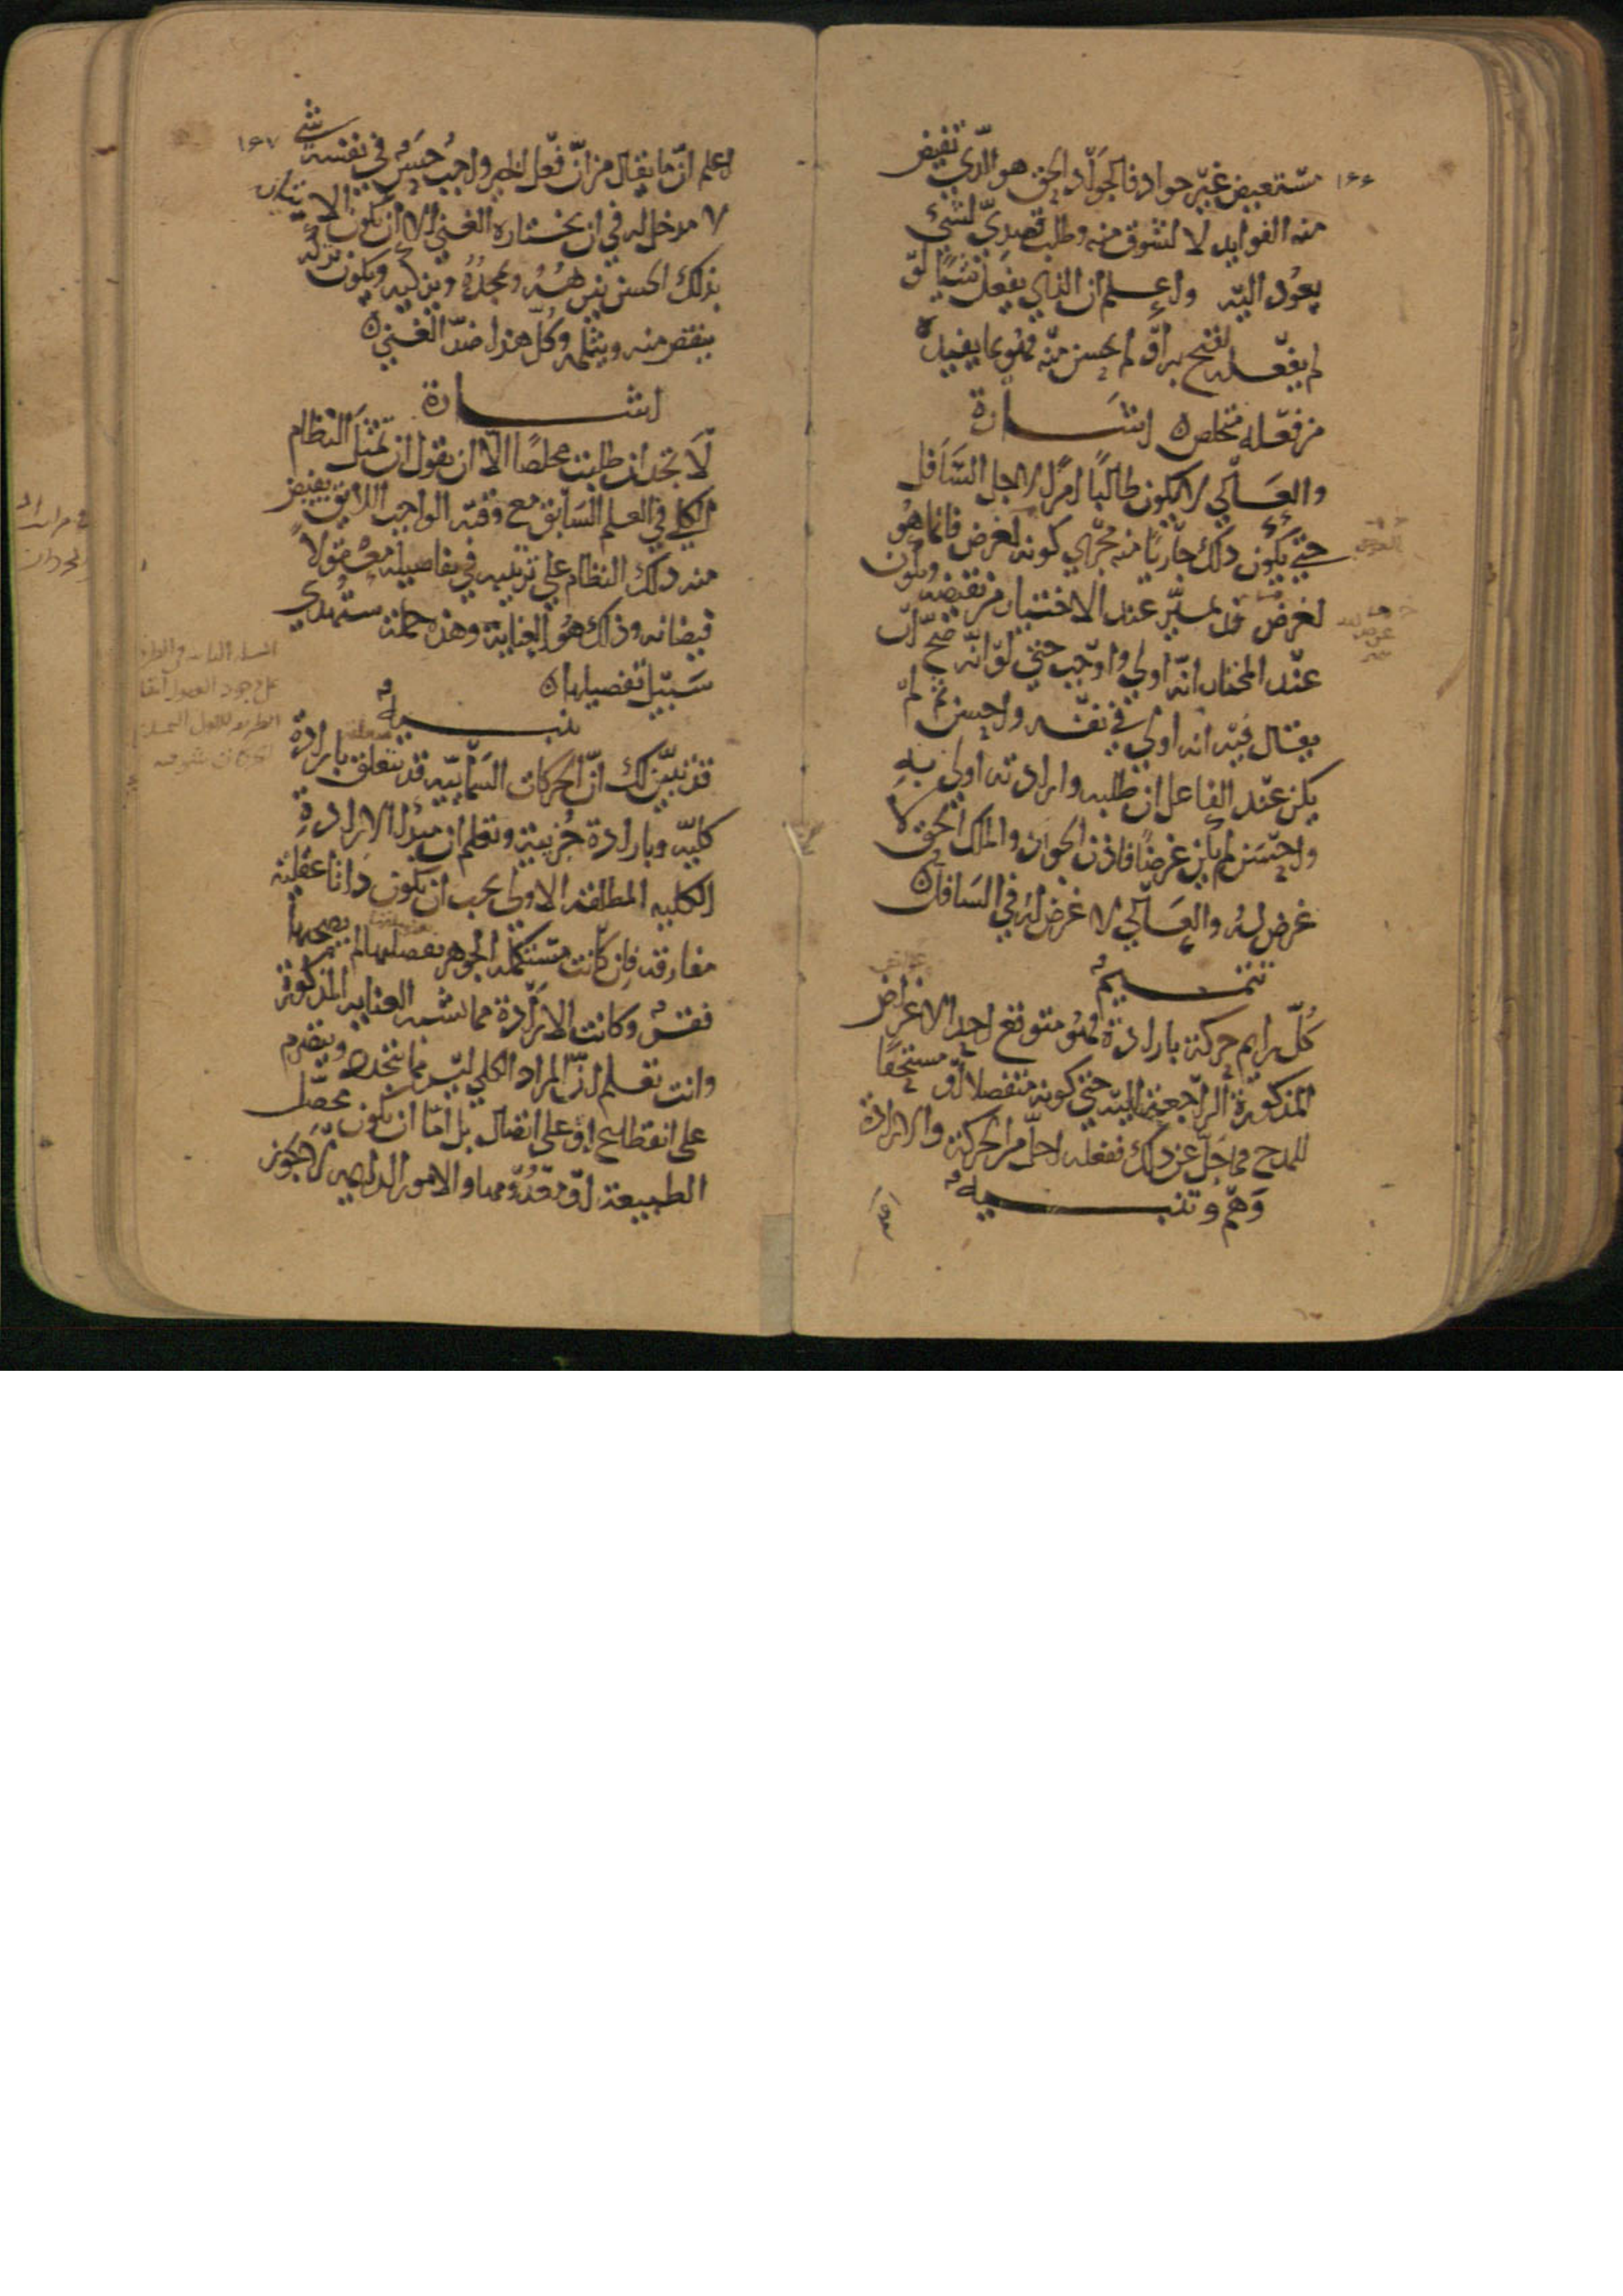 ١٦٦
مستعيض غير جواد فالجواد الحق هو الذي تفيض
منه الفوايد لا لشوق منه وطلب قصدي لشيء
يعود اليه واعلم ان الذي يفعل شيئا لو
لم يفعله لقبح به او لم يحسن منه فهو بما يفيده
من فعله متخلص اشارة
والعالي لا يكون طالبا امرا لاجل السافل
حتى يكون ذلك جاريا منه مجرى كونه لغرض فان ما هو
لغرض قد يتميز عند الاختيار من نقيضه ويكون
عند المختار انه اولى واوجب حتى لو انه صح ان
يقال فيه انه اولى في نفسه واحسن ثم لم
يكن عند الفاعل ان طلبه وارادته اولى به
واحسن لم يكن غرضا فاذن الجواد والملك الحق لا
غرض له والعالي لا غرض له في السافل
تتميم
كل دايم حركة بارادة فهو متوقع احد الاغراض
المذكورة الراجعة اليه حتى كونه متفضلا او مستحقا
للمدح فما جل عن ذلك ففعله اجل من الحركة والارادة
وهم وتنبيه
اعلم
١٦٧
اعلم ان ما يقال من ان فعل الخير واجب حسن في نفسه شي
لا مدخل له في ان يختاره الغني الا ان يكون الاتيان
بذلك الحسن ينزهه ويمجده ويزكيه ويكون تركه
ينقص منه ويثلمه وكل هذا ضد الغني
اشارة
لا تجد ان طلبت مخلصا الا ان تقول ان تمثل النظام
الكلي في العلم السابق مع وقته الواجب اللايق يفيض
منه ذلك النظام على ترتيبه في تفاصيله معقولا
فيضانه وذلك هو العناية وهذه جملة ستهدي
سبيل تفصيلها
تنبيه
قد تبين لك ان الحركات السمائية قد تتعلق بارادة
كلية وبارادة جزيية وتعلم ان مبدا الارادة
الكلية المطلقة الاولى يجب ان يكون ذاتا عقلية
مفارقة فان كانت مستكملة الجوهر بفضيلتها لم يصحبها
فقر وكانت الارادة مما تشبه العناية المذكورة
وانت تعلم ان المراد الكلي ليس مما يتجدد ويتصرم
على انقطاع او على اتصال بل اما ان يكون محصل
الطبيعة او معدومها والامور الدايمة لا يجوز